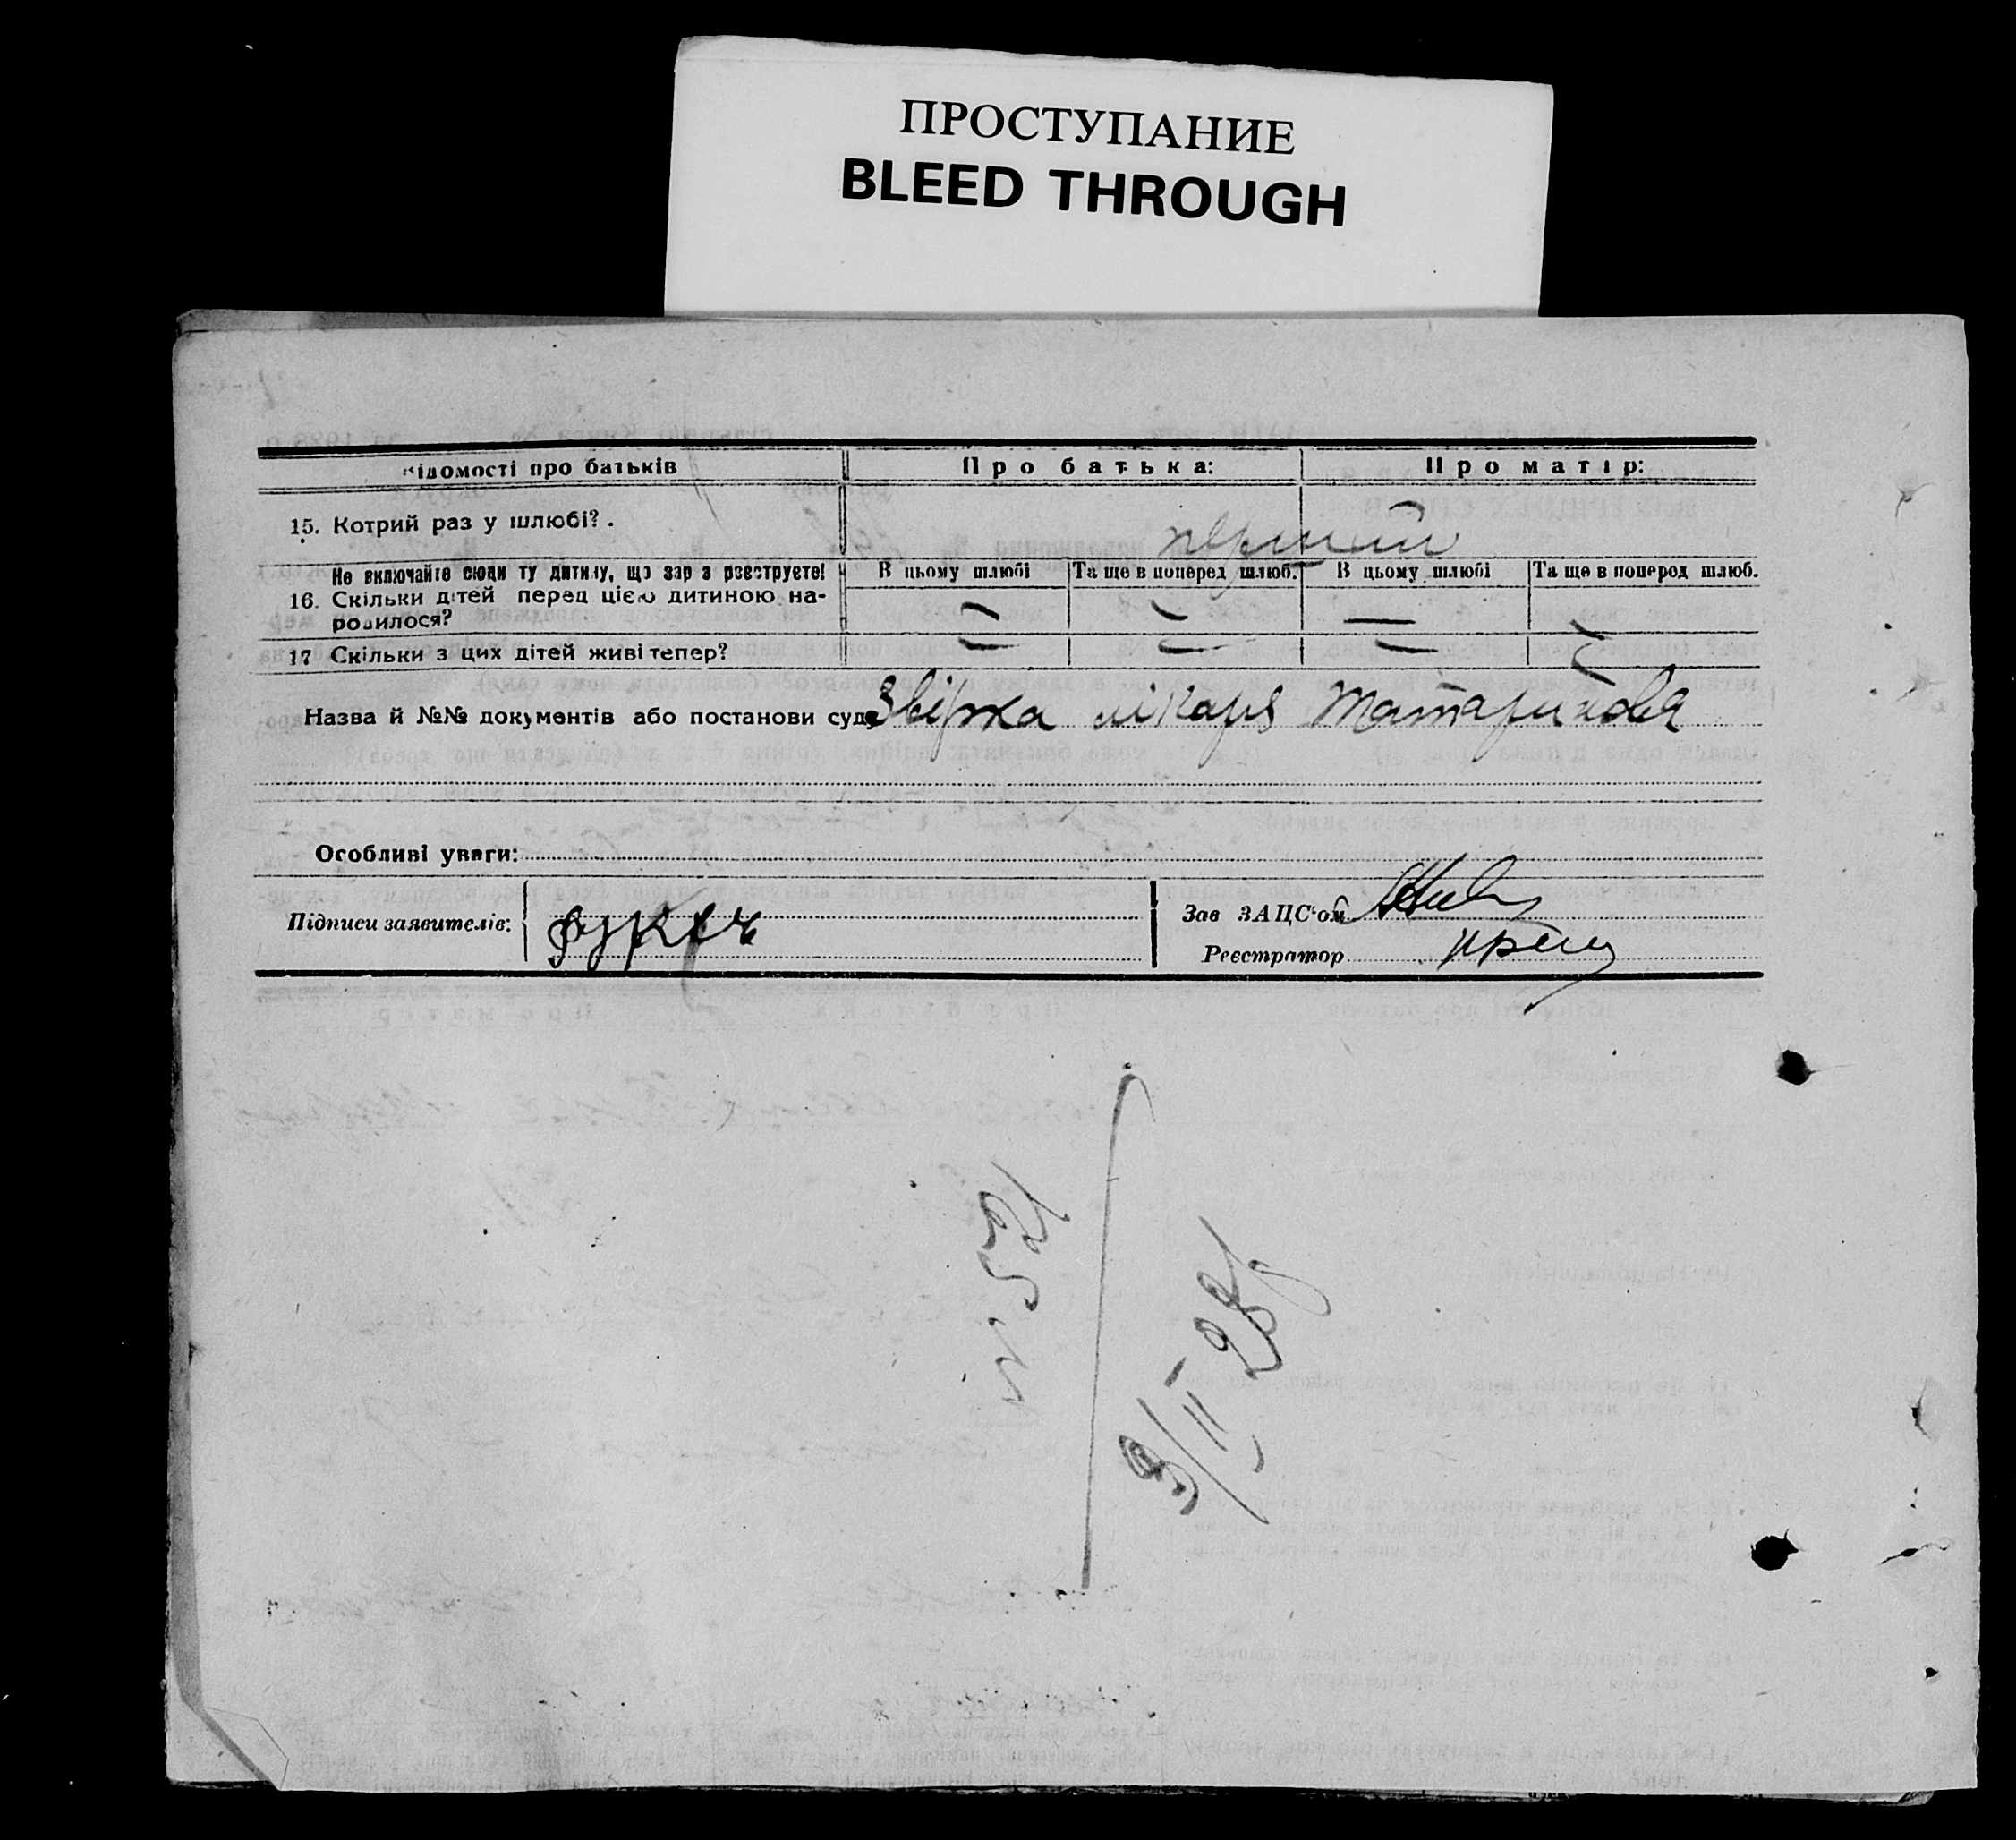 ПРОСТУПАНИЕ
BLEED THROUGH
Відомості про батьків Про батька: Про матір:
15. Котрий раз у шлюбі? . перший
Не включайте сюди ту дитину, що зараз реєструєте! В цьому шлюбі Та ще в поперед шлюб. В цьому шлюбі Та ще в поперед шлюб.
16. Скільки дітей перед цією дитиною на-
родилося? — — — —
17 Скільки з цих дітей живі тепер? — — — —
Назва й №№ документів або постанови суду Звірка лікаря Татарінова
Особливі уваги:
Підписи заявителів:
Зав ЗАЦС'ом
Реєстратор
№ 521
9/II 28